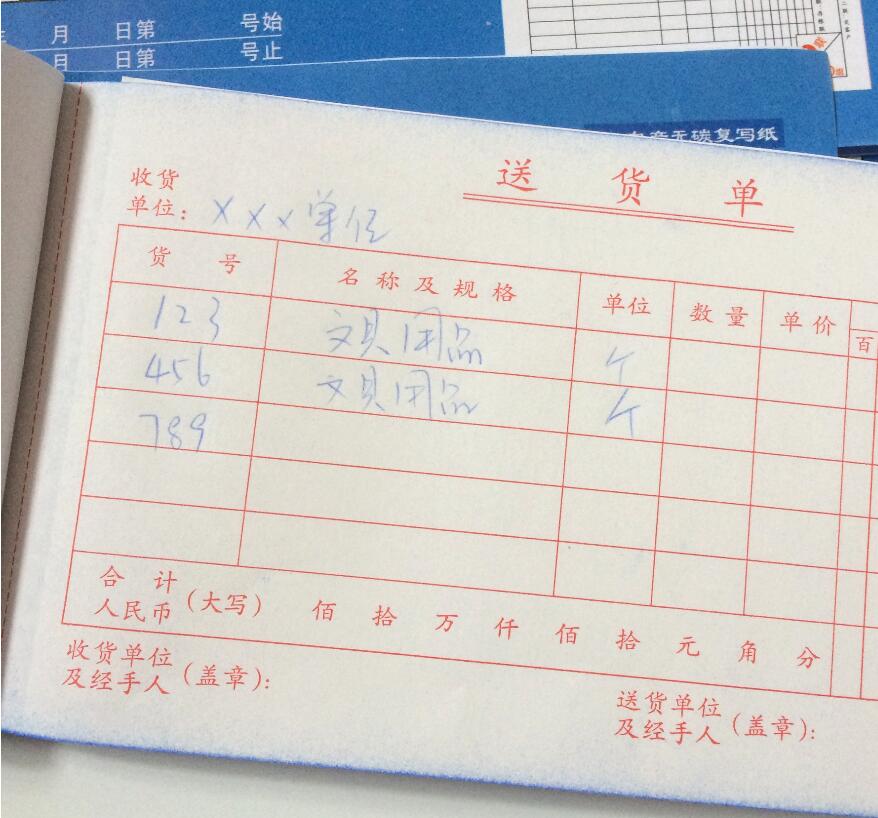 月 日第 号始
月 日第 号止
无碳复写纸
送 货 单
收货
单位: ×××单位
货 号 名称及规格 单位 数量 单价
百
123 文具用品 个
456 文具用品 个
789
合 计
人民币 (大写) 佰 拾 万 仟 佰 拾 元 角 分
收货单位
及经手人 (盖章):
送货单位
及经手人 (盖章):